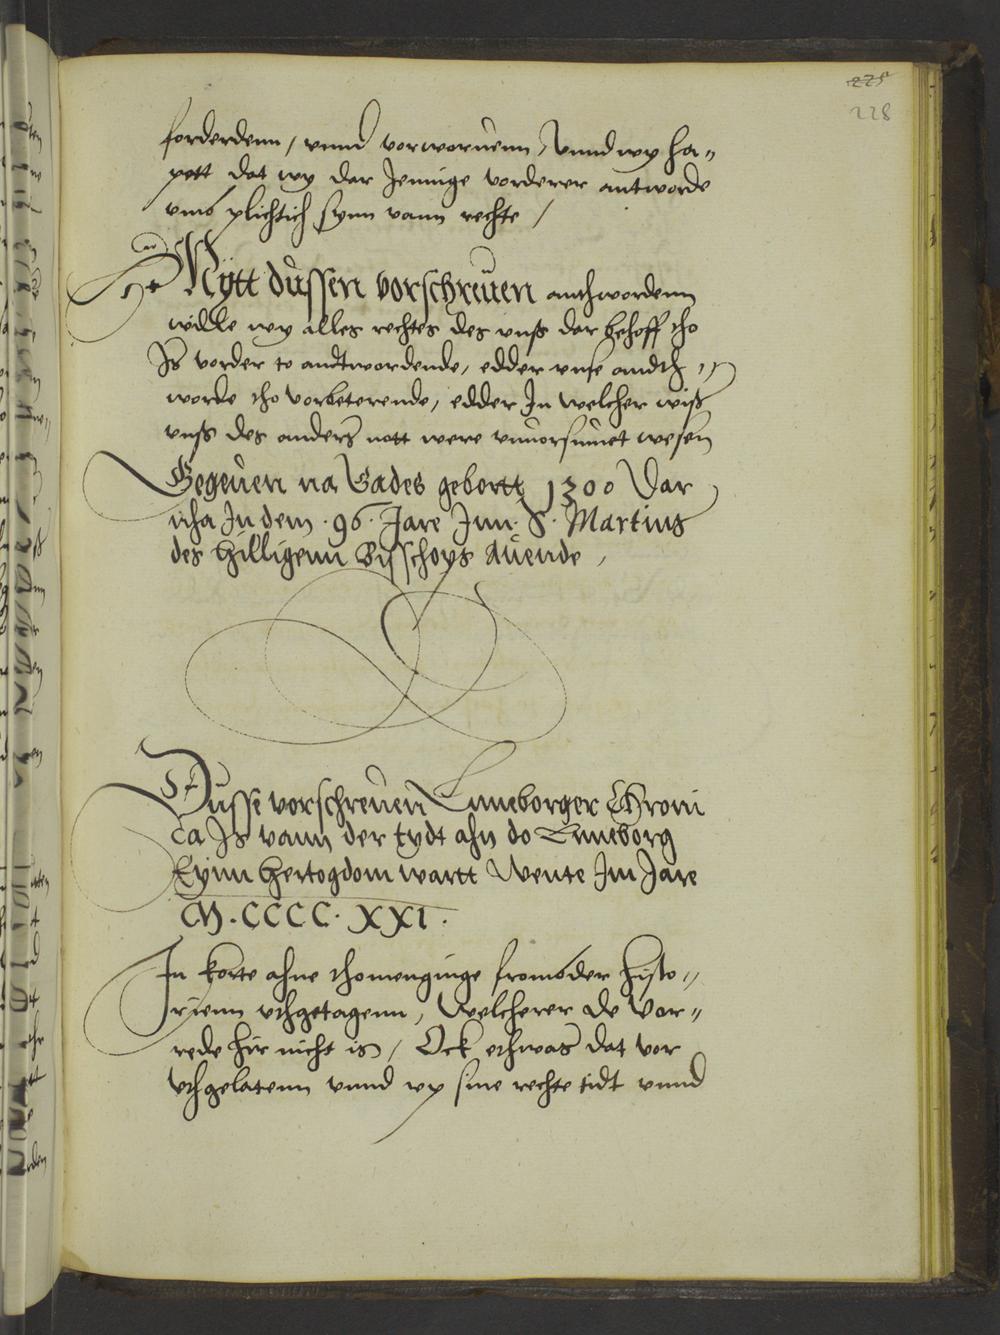 225
228
forderdenn / vnnd vorworuenn / Vnnd wy ha„
pett dat wy dar Jeninge vorderer antworde
vmb plichtich synn vann rechte /
Mytt dussen vorschreuen anthwordenn
wille wy alles rechtes des vnß dar behoff tho
Is vorder to andtwordende, edder vnse andth„
worde tho vorbeterende, edder In welcher wiß
vnß des anders nott were vnuorsumet wesen
Gegeuen na Gades gebortt 1300 Dar
nha In dem · 96 · Jare Inn · S · Martins
des hilligenn Bisschops Auende ,
Dusse vorschreuen Luneborger Croni
ca Is vann der tydt ahn do Luneborg
Eynn hertogdom wartt Wente Im Jare
M · CCCC · XXI ·
In korte ahne thomenginge frombder histo„
rienn vthgetagenn, Welcherer de Vor„
rede hir nicht is / Ock ethwas dat vor
vthgelatenn vnnd vp sine rechte tidt vnnd